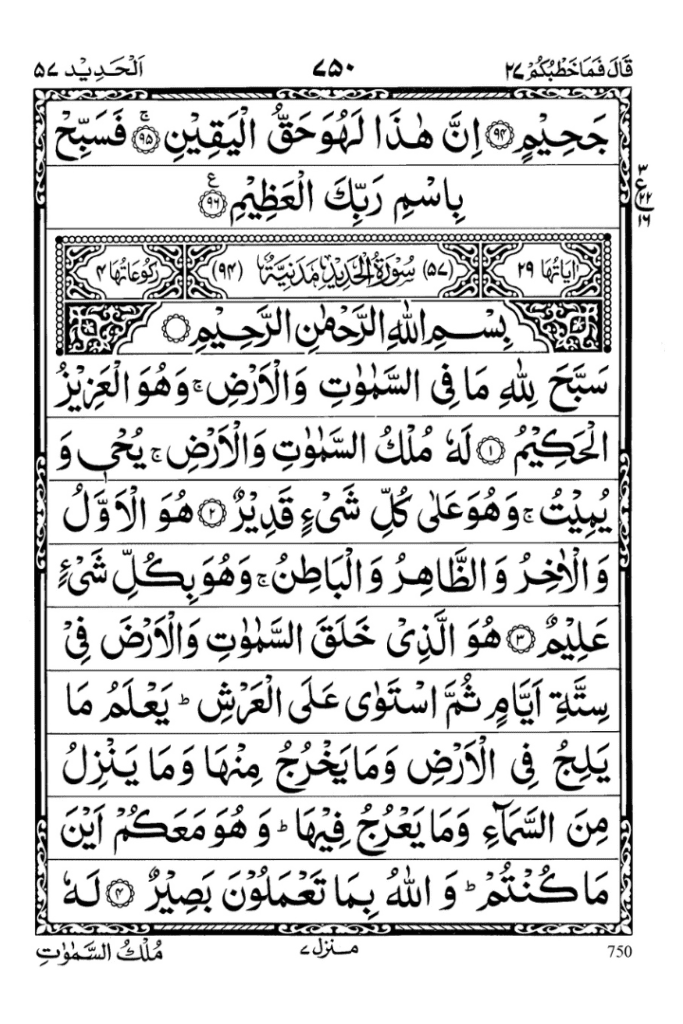 قَالَ فَمَا خَطْبُكُمْ ٢٧ ٧٥٠ اَلْحَـدِيْـد ٥٧
جَحِيْمٍ ﴿٩٤﴾ اِنَّ هٰذَا لَهُوَ حَقُّ الْيَقِيْنِ ۚ ﴿٩٥﴾ فَسَبِّحْ
بِاسْمِ رَبِّكَ الْعَظِيْمِ ﴿٩٦﴾ ع
٣
ع
٢٢
١٦
اٰيَاتُهَا ٢٩ (٥٧) سُوْرَةُ الْحَدِيْدِ مَدَنِيَّةٌ (٩٤) رُكُوْعَاتُهَا ٤
بِسْــمِ اللّٰهِ الرَّحْمٰنِ الرَّحِيْمِ
سَبَّحَ لِلّٰهِ مَا فِى السَّمٰوٰتِ وَالْاَرْضِ ۚ وَهُوَ الْعَزِيْزُ
الْحَكِيْمُ ﴿١﴾ لَهٗ مُلْكُ السَّمٰوٰتِ وَالْاَرْضِ ۚ يُحْيٖ وَ
يُمِيْتُ ۚ وَهُوَ عَلٰى كُلِّ شَىْءٍ قَدِيْرٌ ﴿٢﴾ هُوَ الْاَوَّلُ
وَالْاٰخِرُ وَالظَّاهِرُ وَالْبَاطِنُ ۚ وَهُوَ بِكُلِّ شَىْءٍ
عَلِيْمٌ ﴿٣﴾ هُوَ الَّذِىْ خَلَقَ السَّمٰوٰتِ وَالْاَرْضَ فِىْ
سِتَّةِ اَيَّامٍ ثُمَّ اسْتَوٰى عَلَى الْعَرْشِ ؕ يَعْلَمُ مَا
يَلِجُ فِى الْاَرْضِ وَمَا يَخْرُجُ مِنْهَا وَمَا يَنْزِلُ
مِنَ السَّمَآءِ وَمَا يَعْرُجُ فِيْهَا ؕ وَ هُوَ مَعَكُمْ اَيْنَ
مَا كُنْتُمْ ؕ وَ اللّٰهُ بِمَا تَعْمَلُوْنَ بَصِيْرٌ ﴿٤﴾ لَهٗ
750 مــنزل ٧ مُلْكُ السَّمٰوٰتِ